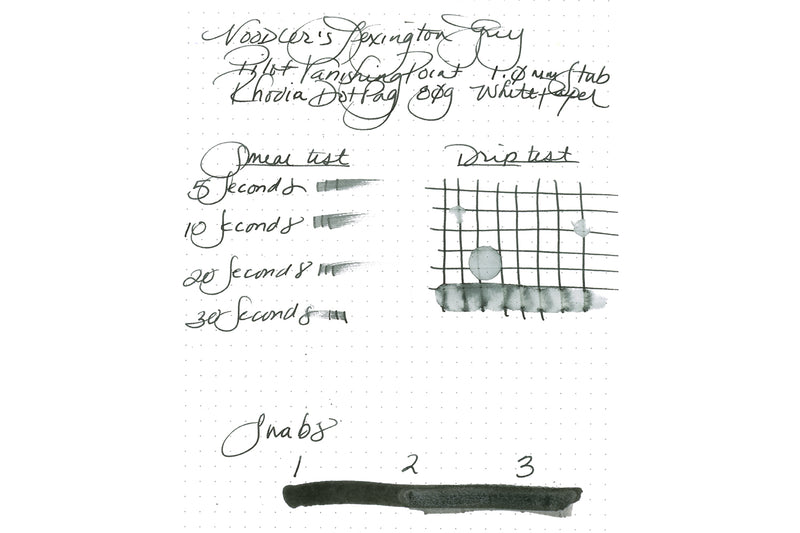 Noodler's Lexington Grey
Pilot Vanishing Point 1.0mm Stub
Rhodia DotPad 80g White paper
Smear test
5 Seconds
10 Seconds
20 Seconds
30 Seconds
Drip test
Swabs
1 2 3